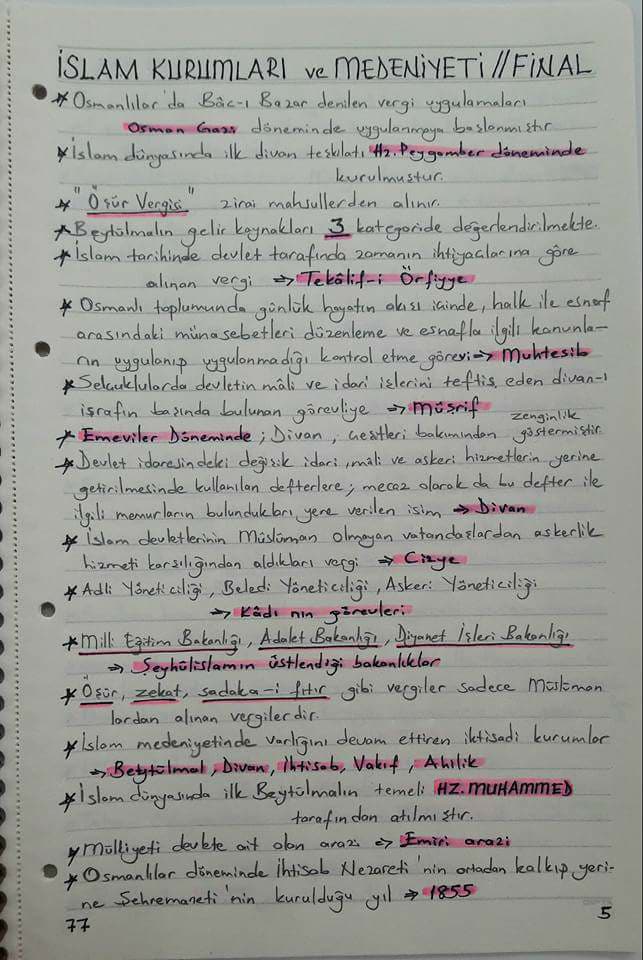 İSLAM KURUMLARI ve MEDENİYETİ // FİNAL
* Osmanlılar'da Bâc-ı Bazar denilen vergi uygulamaları
Osman Gazi döneminde uygulanmaya başlanmıştır
* İslam dünyasında ilk divan teşkilatı Hz. Peygamber döneminde
kurulmuştur.
* "Öşür Vergisi" zirai mahsullerden alınır.
* Beytülmalın gelir kaynakları 3 kategoride değerlendirilmekte.
* İslam tarihinde devlet tarafında zamanın ihtiyaçlarına göre
alınan vergi ⇒ Tekâlif-i Örfiyye
* Osmanlı toplumunda günlük hayatın akışı içinde, halk ile esnaf
arasındaki münasebetleri düzenleme ve esnafla ilgili kanunla-
rın uygulanıp uygulanmadığı kontrol etme görevi ⇒ Muhtesib
* Selçuklularda devletin mâli ve idari işlerini teftiş eden divan-ı
işrafın başında bulunan görevliye ⇒ Müşrif
* Emeviler Döneminde ; Divan , çeşitleri bakımından zenginlik göstermiştir.
* Devlet idaresindeki değişik idari, mâli ve askeri hizmetlerin yerine
getirilmesinde kullanılan defterlere ; mecaz olarak da bu defter ile
ilgili memurların bulundukları yere verilen isim ⇒ Divan
* İslam devletlerinin Müslüman olmayan vatandaşlardan askerlik
hizmeti karşılığından aldıkları vergi ⇒ Cizye
* Adli Yöneticiliği , Beledi Yöneticiliği , Askeri Yöneticiliği
⇒ Kâdı'nın görevleri
* Milli Eğitim Bakanlığı , Adalet Bakanlığı , Diyanet İşleri Bakanlığı
⇒ Şeyhülislamın üstlendiği bakanlıklar
* Öşür , zekat , sadaka-i fıtır gibi vergiler sadece Müslüman
lardan alınan vergilerdir.
* İslam medeniyetinde varlığını devam ettiren iktisadi kurumlar
⇒ Beytülmal , Divan , İhtisab , Vakıf , Ahilik
* İslam dünyasında ilk Beytülmalın temeli HZ. MUHAMMED
tarafından atılmıştır.
* Mülkiyeti devlete ait olan arazi ⇒ Emiri arazi
* Osmanlılar döneminde İhtisab Nezareti'nin ortadan kalkıp yeri-
ne Şehremaneti'nin kurulduğu yıl ⇒ 1855
77
5